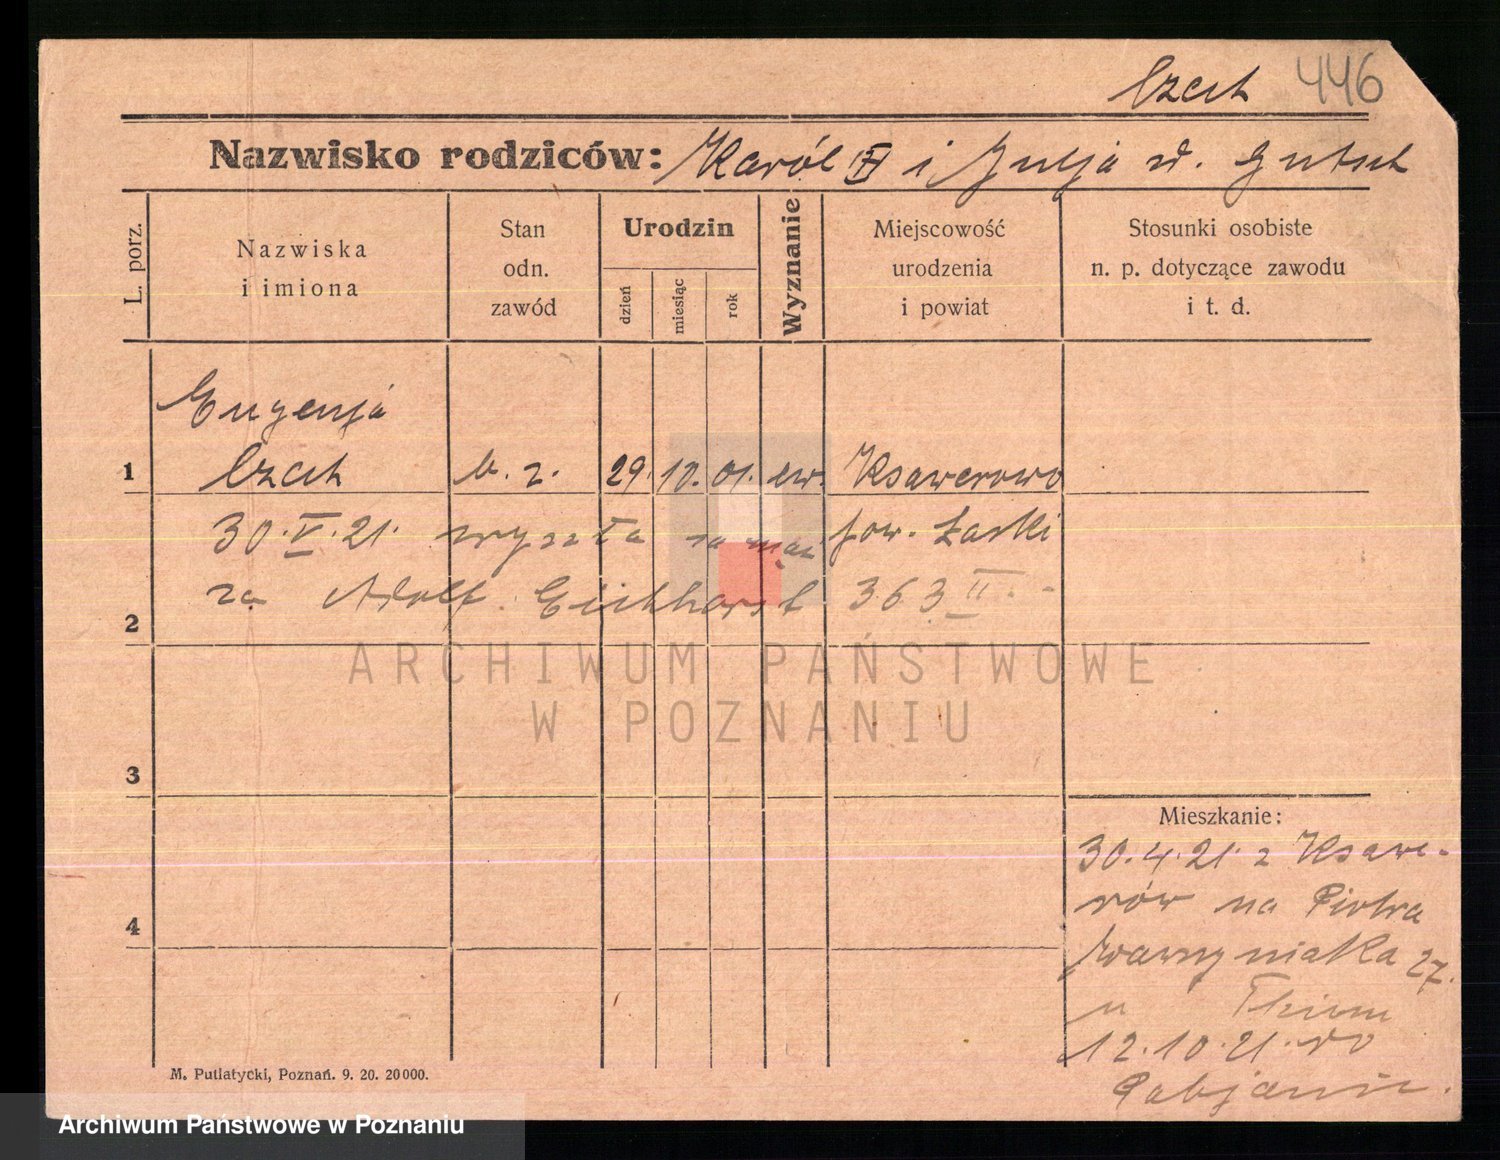 Czech 446
Nazwisko rodziców: Karól i Julja d. Gutsch
L. porz.
Nazwiska
i imiona
Stan
odn.
zawód
Urodzin
dzień
miesiąc
rok
Wyznanie
Miejscowość
urodzenia
i powiat
Stosunki osobiste
n. p. dotyczące zawodu
i t. d.
Eugenja
1 Czech b. z. 29. 10. 01. ew. Ksawerowo
30.V.21. wyszła za mąż pow. Łaski
2 za Adolf Eichhorst 363 II.
ARCHIWUM PAŃSTWOWE
W POZNANIU
3
Mieszkanie:
30.4.21. z Ksawe-
rów na Piotra
4
Wawrzyniaka 27.
u
12.10.21. do
Pabjanic.
M. Putiatycki, Poznań. 9. 20. 20000.
Archiwum Państwowe w Poznaniu